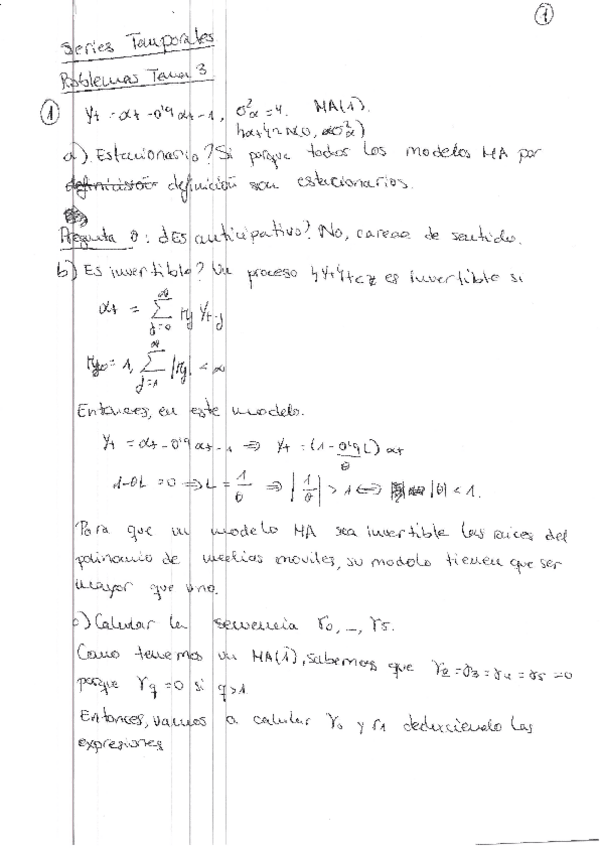 1
Series Temporales
Problemas Tema 3
① yt = αt - 0'9 αt-1, σ²α = 4. MA(1).
{αt} ~ N(0, σ²α)
a). Estacionario? Sí porque todos los modelos MA por
definición son estacionarios.
Pregunta 0: ¿Es anticipativo? No, carece de sentido.
b) Es invertible? Un proceso {Yt}t∈Z es invertible si
αt = ∑_{j=0}^{∞} πj Yt-j
π0 = 1, ∑_{j=1}^{∞} |πj| < ∞
Entonces, en este modelo.
Yt = αt - 0'9 αt-1 ⇒ Yt = (1 - 0'9 L) αt
θ
1-θL = 0 ⇒ L = 1/θ ⇒ |1/θ| > 1 ⇔ |θ| < 1.
Para que un modelo MA sea invertible las raíces del
polinomio de medias móviles, su modolo tienen que ser
mayor que uno.
c) Calcular la secuencia γ0, ..., γ5.
Como tenemos un MA(1), sabemos que γ2 = γ3 = γ4 = γ5 = 0
porque γq = 0 si q > 1.
Entonces, vamos a calcular γ0 y γ1 deduciendo las
expresiones